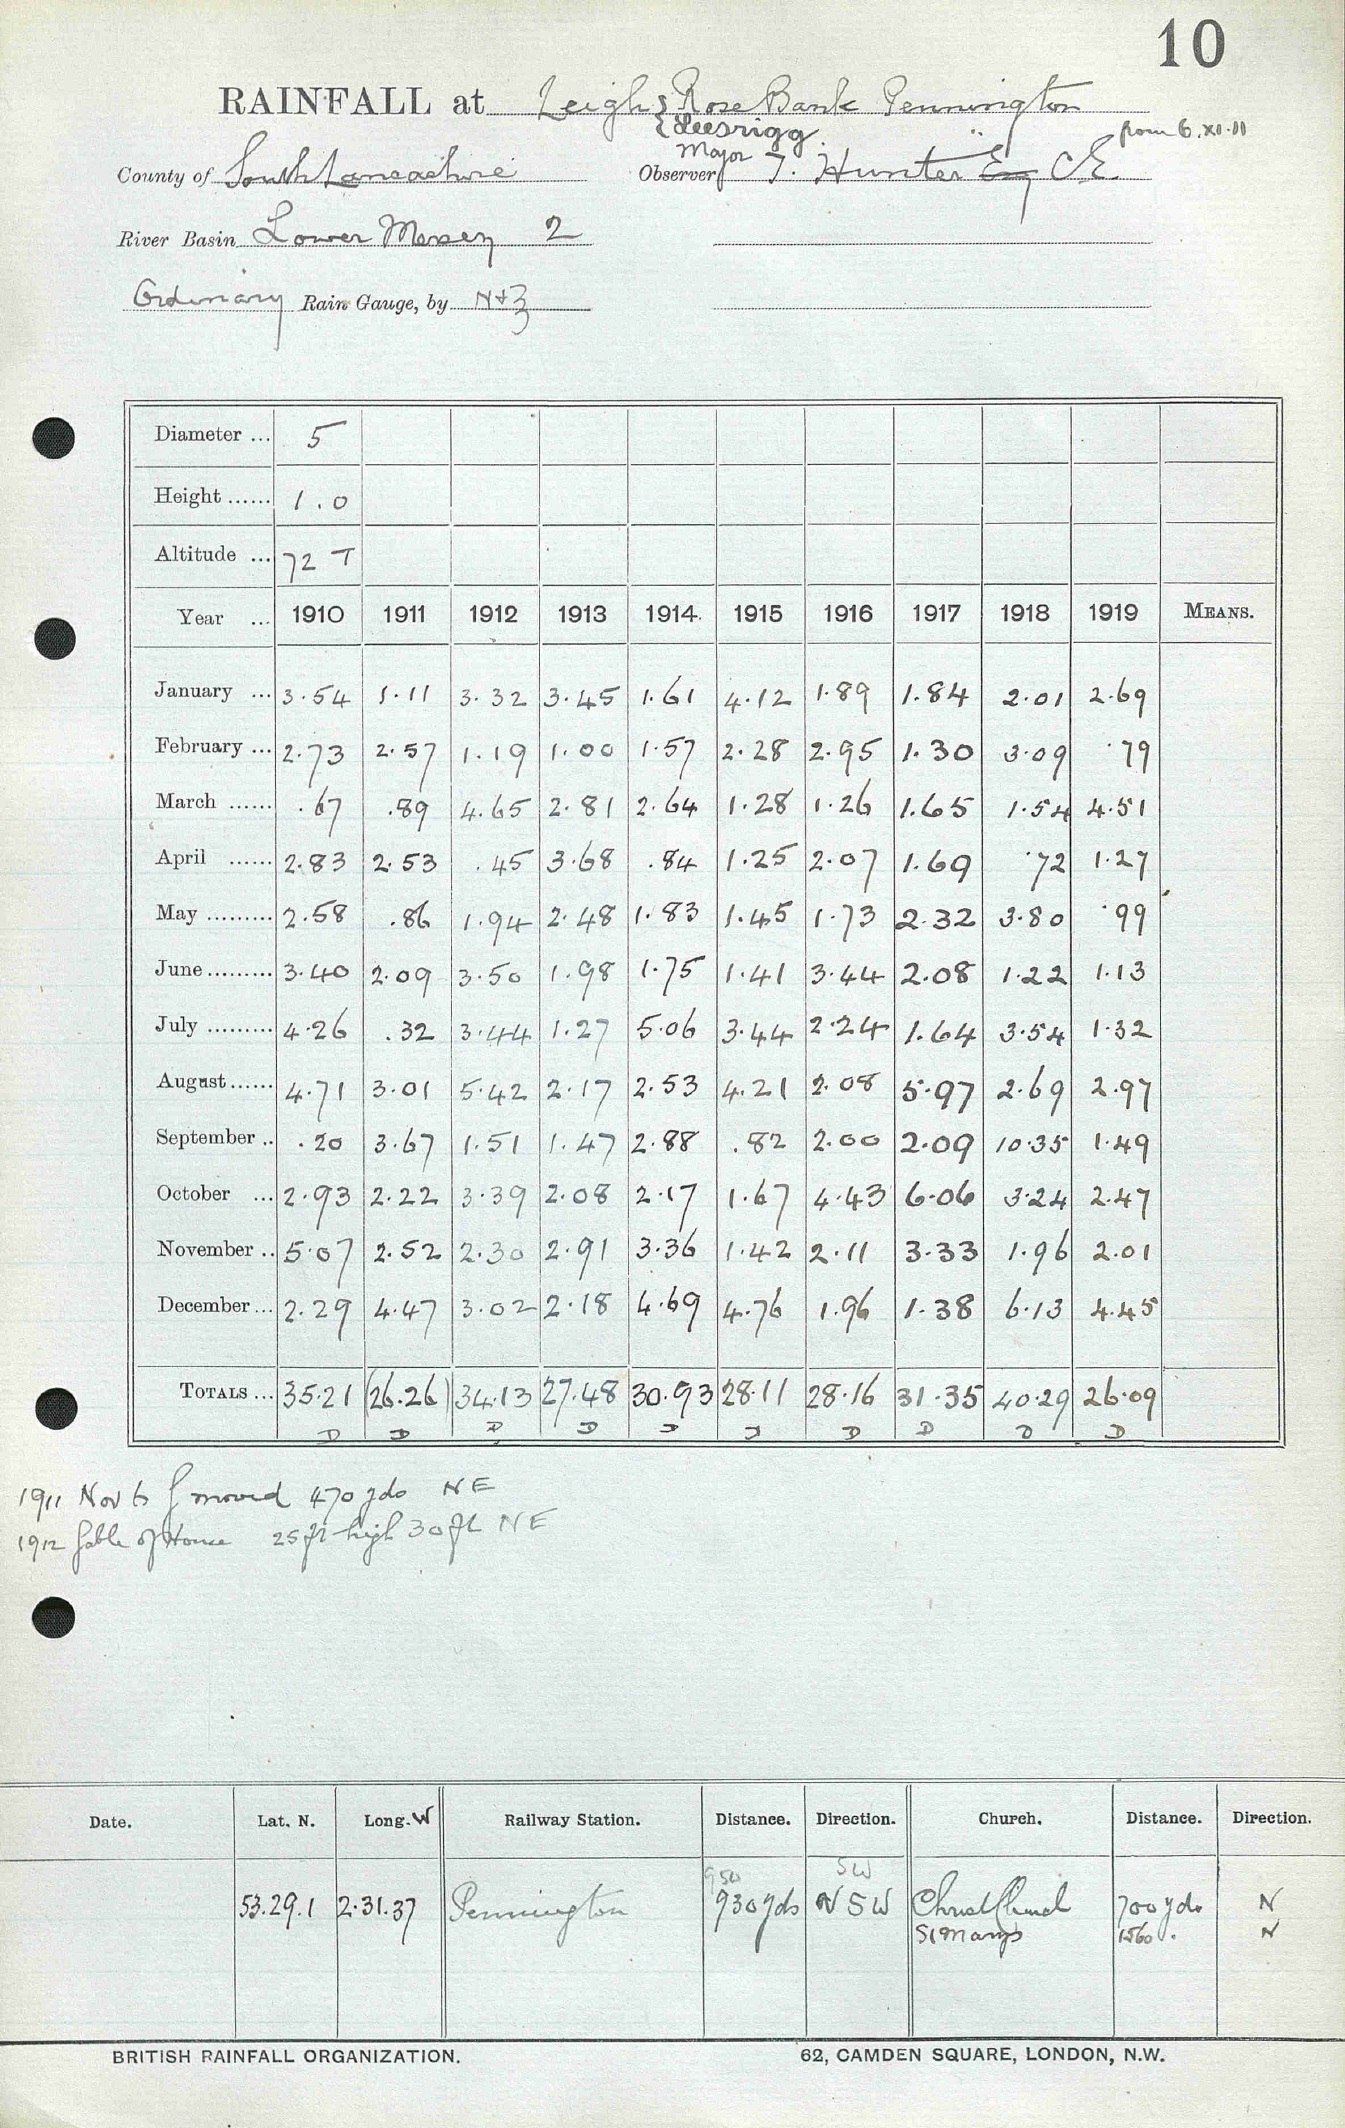 10
RAINFALL at Leigh { Rose Bank Pennington
{ Leesrigg from 6.XI.11
County of South Lancashire Observer Major T. Hunter Esq CE.
River Basin Lower Mersey 2
Ordinary Rain Gauge, by N+Z
Diameter ... 5
Height ...... 1.0
Altitude ... 72 T
Year ... 1910 1911 1912 1913 1914 1915 1916 1917 1918 1919 MEANS.
January ... 3.54 1.11 3.32 3.45 1.61 4.12 1.89 1.84 2.01 2.69
February ... 2.73 2.57 1.19 1.00 1.57 2.28 2.95 1.30 3.09 .79
March ...... .67 .89 4.65 2.81 2.64 1.28 1.26 1.65 1.54 4.51
April ...... 2.83 2.53 .45 3.68 .84 1.25 2.07 1.69 .72 1.27
May ......... 2.58 .86 1.94 2.48 1.83 1.45 1.73 2.32 3.80 .99
June ......... 3.40 2.09 3.50 1.98 1.75 1.41 3.44 2.08 1.22 1.13
July ......... 4.26 .32 3.44 1.27 5.06 3.44 2.24 1.64 3.54 1.32
August ...... 4.71 3.01 5.42 2.17 2.53 4.21 2.08 5.97 2.69 2.97
September .. .20 3.67 1.51 1.47 2.88 .82 2.00 2.09 10.35 1.49
October ... 2.93 2.22 3.39 2.08 2.17 1.67 4.43 6.06 3.24 2.47
November .. 5.07 2.52 2.30 2.91 3.36 1.42 2.11 3.33 1.96 2.01
December ... 2.29 4.47 3.02 2.18 4.69 4.76 1.96 1.38 6.13 4.45
TOTALS ... 35.21 (26.26) 34.13 27.48 30.93 28.11 28.16 31.35 40.29 26.09
D D D D D D D D D D
1911 Nov 6 g moved 470 yds NE
1912 Gable of House 25 ft high 30 ft NE
Date. Lat. N. Long. W Railway Station. Distance. Direction. Church. Distance. Direction.
950 SW
53.29.1 2.31.37 Pennington 930 yds N S W Christ Church 700 yds N
St Marys 1560 . N
BRITISH RAINFALL ORGANIZATION. 62, CAMDEN SQUARE, LONDON, N.W.